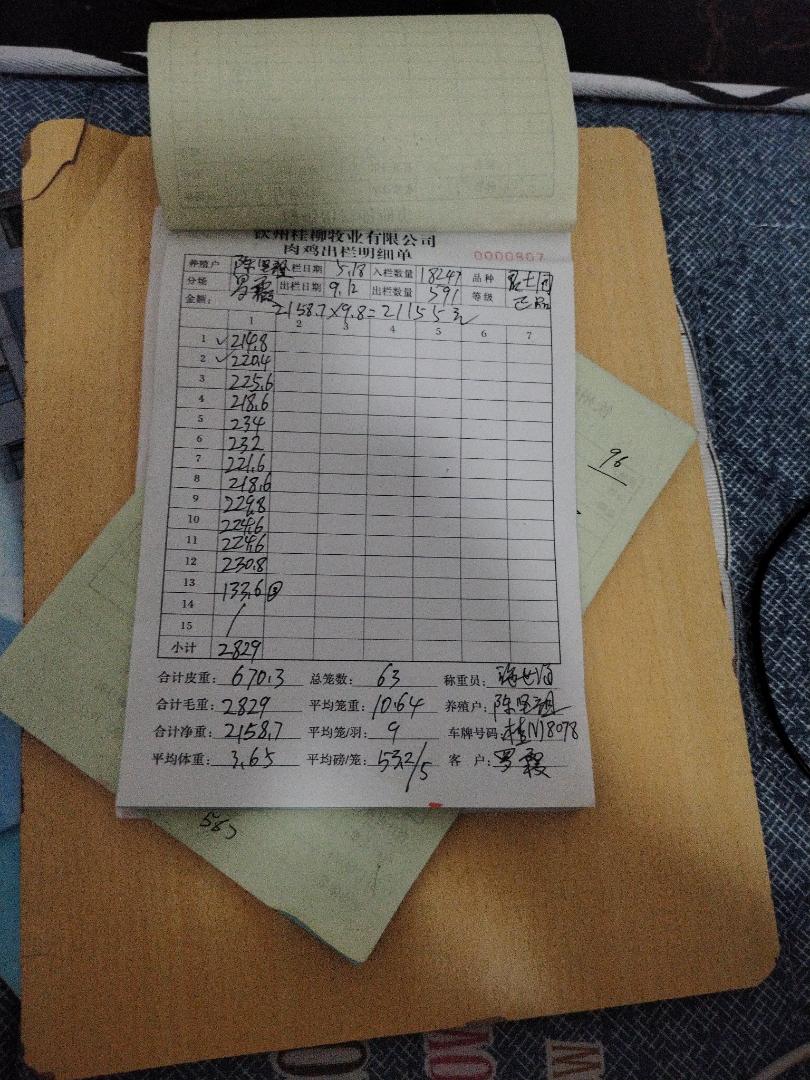 钦州桂柳牧业有限公司
肉鸡出栏明细单 0000807
养殖户 陈 栏日期 5.18 入栏数量 18247 品种
分场 罗霞 出栏日期 9.12 出栏数量 591 等级
金额: 2158.7×9.8=21155元
1 2 3 4 5 6 7
1 ✓ 214.8
2 ✓ 220.4
3 225.6
4 218.6
5 234
6 232
7 221.6
8 218.6
9 229.8
10 224.6
11 224.6
12 230.8
13 133.6 ③
14
15
小计 2829
合计皮重: 670.3 总笼数: 63 称重员:
合计毛重: 2829 平均笼重: 10.64 养殖户: 陈
合计净重: 2158.7 平均笼/羽: 9 车牌号码: 桂N18078
平均体重: 3.65 平均磅/笼: 53.2/5 客 户: 罗霞
96